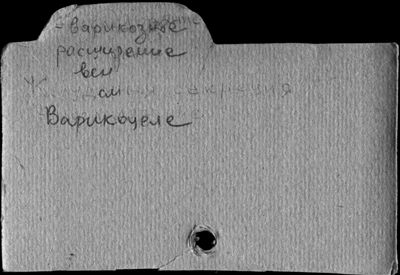 - варикозное
расширение
вен
см
Варикоцеле